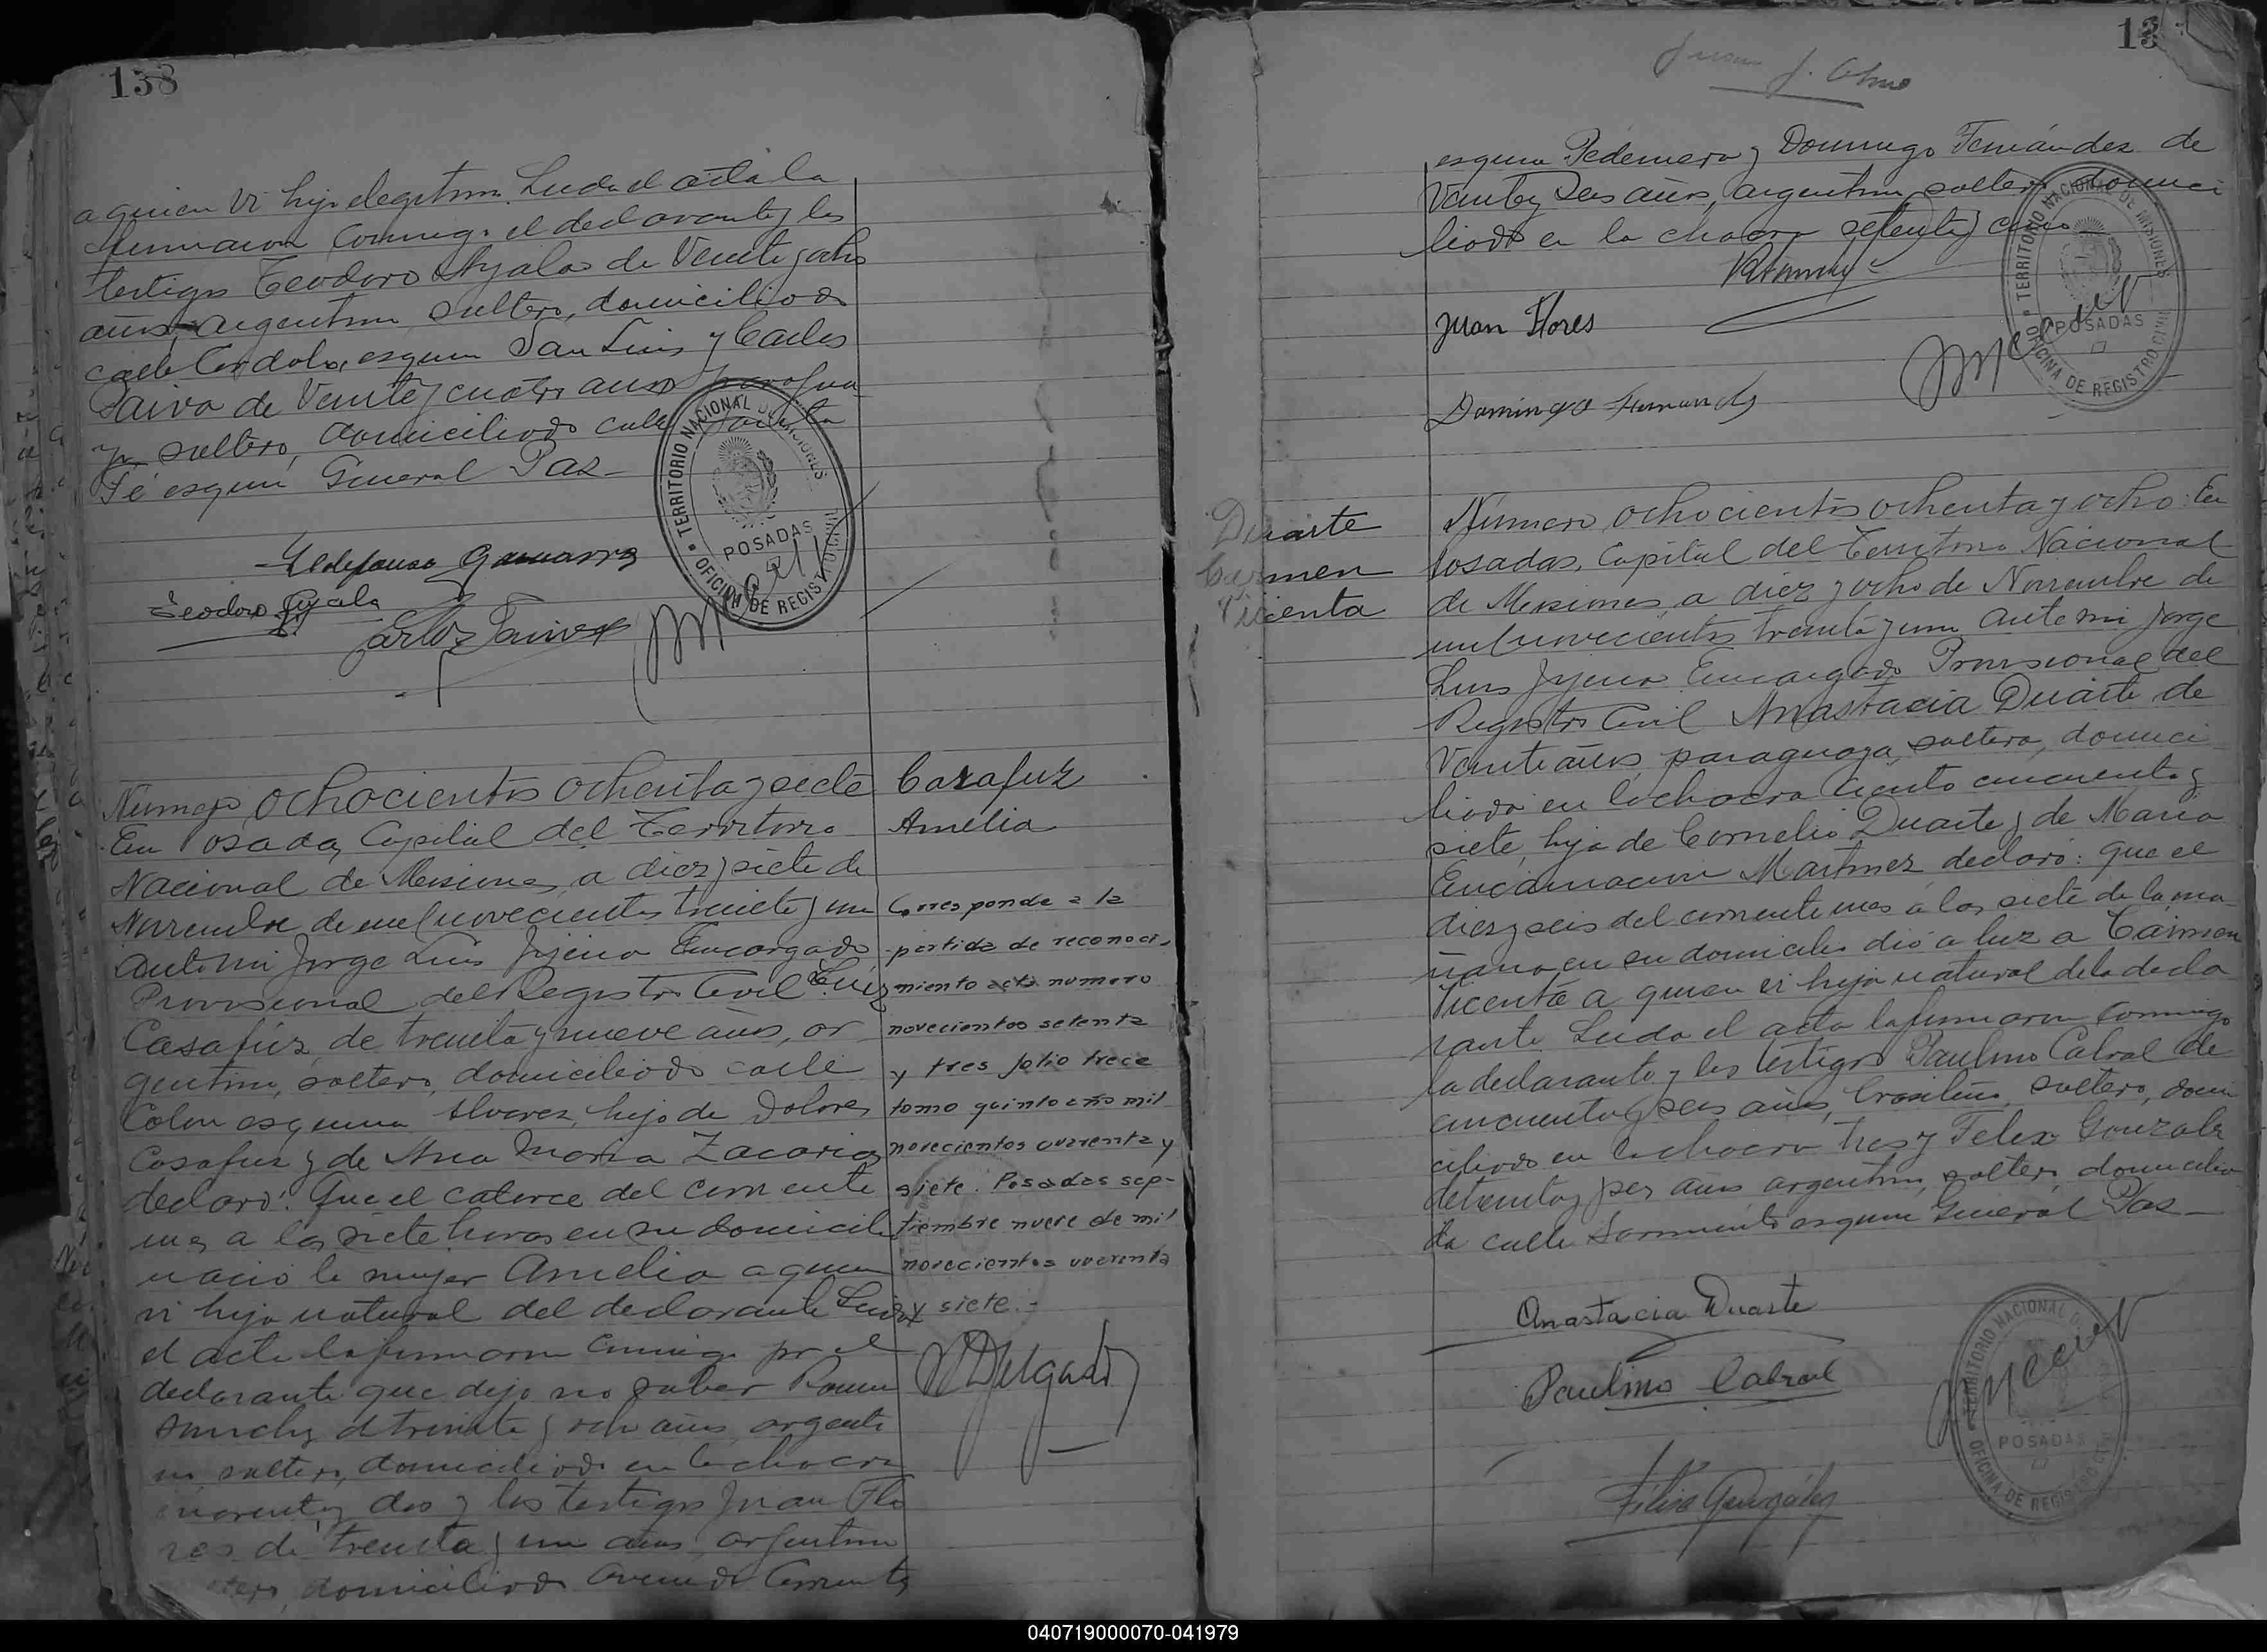 138
a quien vi hijo legitimo. Leida el acta la
firmaron conmigo el declarante y los
testigos Teodoro Ayala de Veinte y ocho
años, argentino, soltero, domiciliado
calle Cordoba esquina San Luis y Carlos
Paiva de Veinte y cuatro años paragua
yo soltero, domiciliado calle Santa
Fé esquina General Paz-
Ildefonso Gamarra
Teodoro Ayala
Carlos Paiva
TERRITORIO NACIONAL DE MISIONES
POSADAS
OFICINA DE REGISTRO CIVIL
Numero ochocientos ochenta y siete
En Posadas, Capital del Territorio
Nacional de Misiones, a diez y siete de
Noviembre de mil novecientos treinta y uno
Ante mi Jorge Luis Jijena Encargado
Provisional del Registro Civil Luiz
Casafuz, de treinta y nueve años, ar
gentino, soltero, domiciliado calle
Colon esquina Alvarez, hijo de Dolores
Casafuz y de Ana Maria Zacarias
declaró: Que el catorce del corriente
mes a las siete horas en su domicilio
nació la mujer Amelia a quien
vi hija natural del declarante Leida
el acta la firmaron conmigo por el
declarante que dijo no saber Roman
de treinta y ocho años, argenti
no soltero, domiciliado en la chacra
cuarenta y dos y los testigos Juan Flo
res de treinta y un años argentino
soltero, domiciliado Avenida Corrientes
Casafuz
Amelia
Corresponde a la
partida de reconoci-
miento acta numero
novecientos setenta
y tres folio trece
tomo quinto año mil
novecientos cuarenta y
siete. Posadas sep-
tiembre nueve de mil
novecientos cuarenta
y siete.-
Delgado
13
Juan J. Olmo
esquina Pedernera y Domingo Fernández de
Veinte y seis años, argentino, soltero domici
liado en la chacra setenta y cinco
Juan Flores
Domingo Fernandez
TERRITORIO NACIONAL DE MISIONES
POSADAS
OFICINA DE REGISTRO CIVIL
Duarte
Carmen
Vicenta
Número ochocientos ochenta y ocho: En
Posadas, Capital del Territorio Nacional
de Misiones, a diez y ocho de Noviembre de
mil novecientos treinta y uno Ante mi Jorge
Luis Jijena Encargado Provisional del
Registro Civil Anastacia Duarte de
Veinte años, paraguaya, soltera, domici
liada en la chacra ciento cincuenta y
siete, hija de Cornelio Duarte y de Maria
Encarnacion Martinez declaró: Que el
diez y seis del corriente mes a las siete de la ma
ñana en su domicilio dió a luz a Carmen
Vicenta a quien vi hija natural de la decla
rante Leida el acta la firmaron conmigo
la declarante y los testigos Paulino Cabral de
cincuenta y seis años, brasilero, soltero, domi
ciliado en la chacra tres y Felix Gonzalez
de treinta y tres años argentino, soltero, domicilia
do calle Sarmiento esquina General Paz-
Anastacia Duarte
Paulino Cabral
Félix González
TERRITORIO NACIONAL DE MISIONES
POSADAS
OFICINA DE REGISTRO CIVIL
040719000070-041979